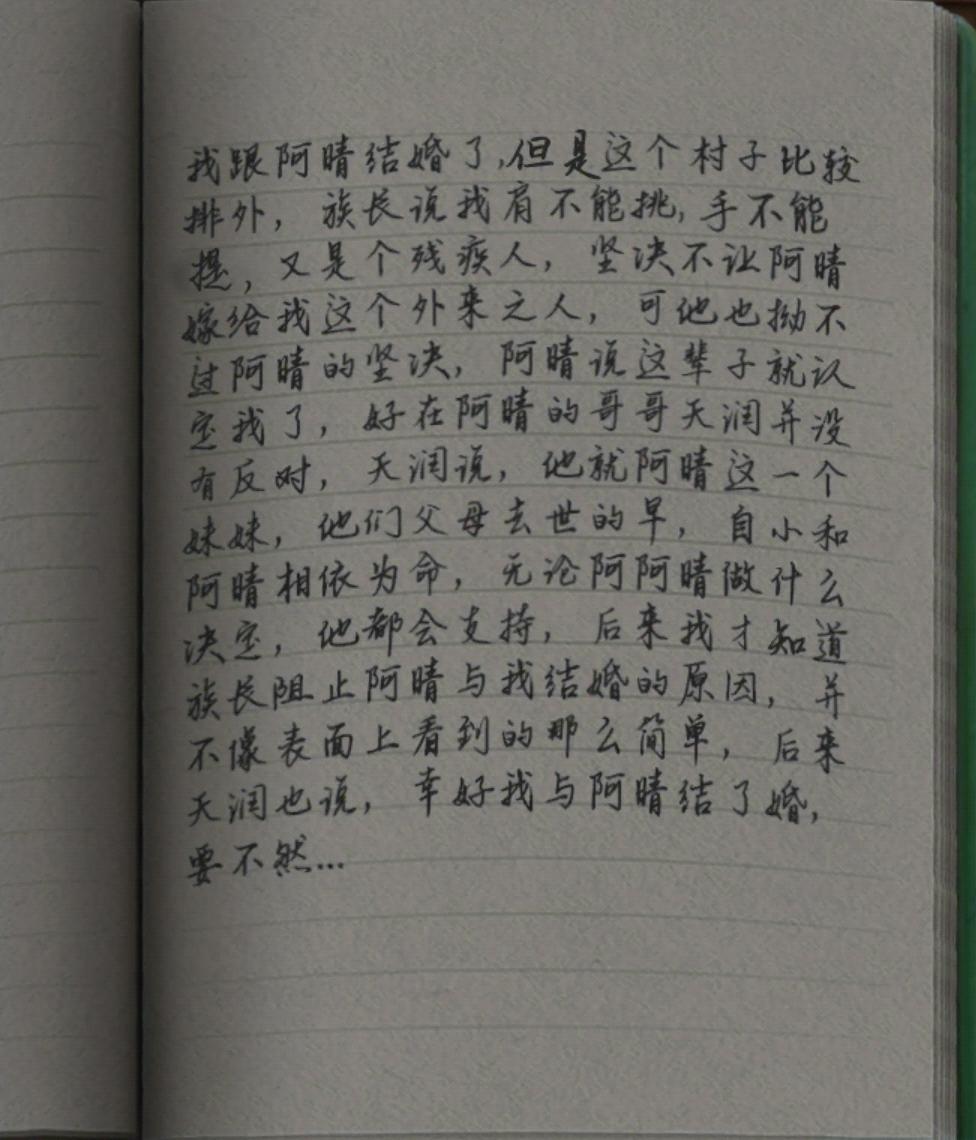 我跟阿晴结婚了,但是这个村子比较
排外，族长说我肩不能挑，手不能
提，又是个残疾人，坚决不让阿晴
嫁给我这个外来之人，可他也拗不
过阿晴的坚决，阿晴说这辈子就认
定我了，好在阿晴的哥哥天润并没
有反对，天润说，他就阿晴这一个
妹妹，他们父母去世的早，自小和
阿晴相依为命，无论阿阿晴做什么
决定，他都会支持，后来我才知道
族长阻止阿晴与我结婚的原因，并
不像表面上看到的那么简单，后来
天润也说，幸好我与阿晴结了婚，
要不然...